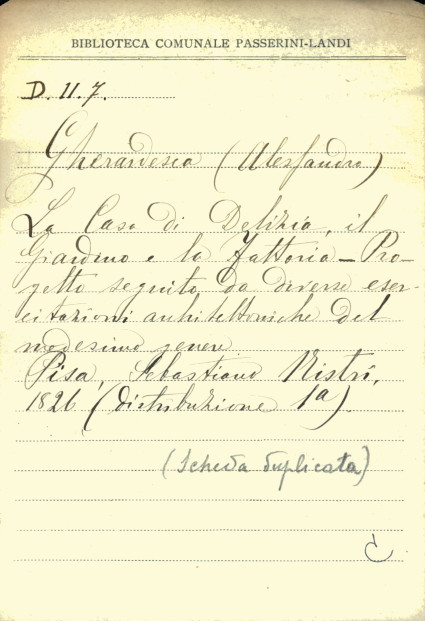 BIBLIOTECA COMUNALE PASSERINI-LANDI
D. 11. 7.
Gherardesca (Alessandro)
La Casa di Delizia, il
Giardino e la Fattoria - Pro-
getto seguito da diverse eser-
citazioni architettoniche del
medesimo genere
Pisa, Sebastiano Nistri,
1826 (distribuzione 1a)
(Scheda duplicata)